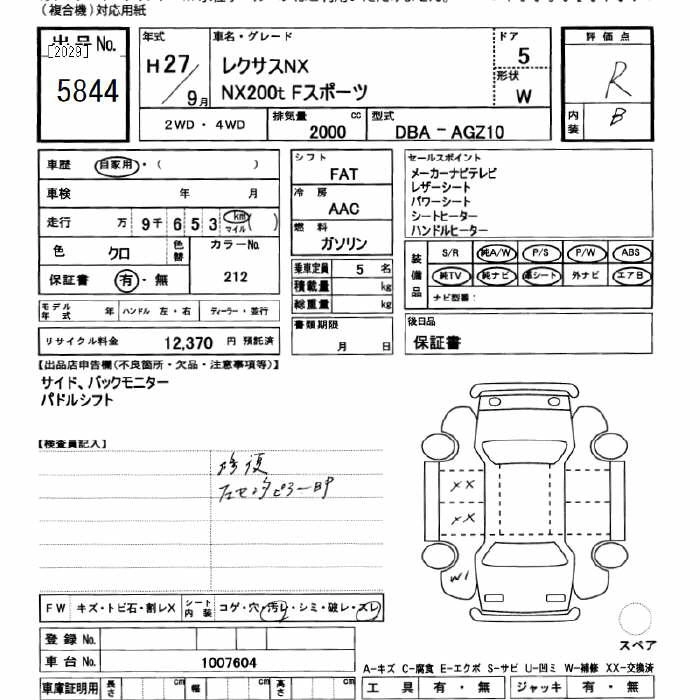 (複合機)対応用紙
出品No.
[2029]
5844
年式
H27/9月
車名・グレード
レクサスNX
NX200t Fスポーツ
ドア
5
形状
W
評価点
R
内装
B
2WD・4WD
排気量 2000 cc
型式 DBA-AGZ10
車歴 自家用・( )
車検 年 月
走行 万 9千 6 5 3 km マイル ( )
色 クロ 色替 カラーNo. 212
保証書 有・無
モデル年式 年 ハンドル 左・右 ディーラー・並行
リサイクル料金 12,370 円 預託済
シフト
FAT
冷房
AAC
燃料
ガソリン
乗車定員 5 名
積載量 kg
総重量 kg
書類期限
月 日
セールスポイント
メーカーナビテレビ
レザーシート
パワーシート
シートヒーター
ハンドルヒーター
装備品
S/R 純A/W P/S P/W ABS
純TV 純ナビ 革シート 外ナビ エアB
ナビ型番:
後日品
保証書
【出品店申告欄(不良箇所・欠品・注意事項等)】
サイド、バックモニター
パドルシフト
【検査員記入】
修復
左センタピラー
XX
XX
W1
スペア
FW キズ・トビ石・割レX シート内装 コゲ・穴・汚レ・シミ・破レ・スレ
登録No.
車台No. 1007604
車庫証明用 長さ cm 幅 cm 高さ cm
A-キズ C-腐食 E-エクボ S-サビ U-凹ミ W-補修 XX-交換済
工具 有・無 ジャッキ 有・無